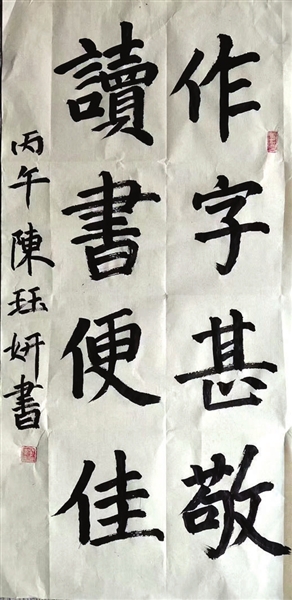 作字甚敬
讀書便佳
丙午陳珏妍書